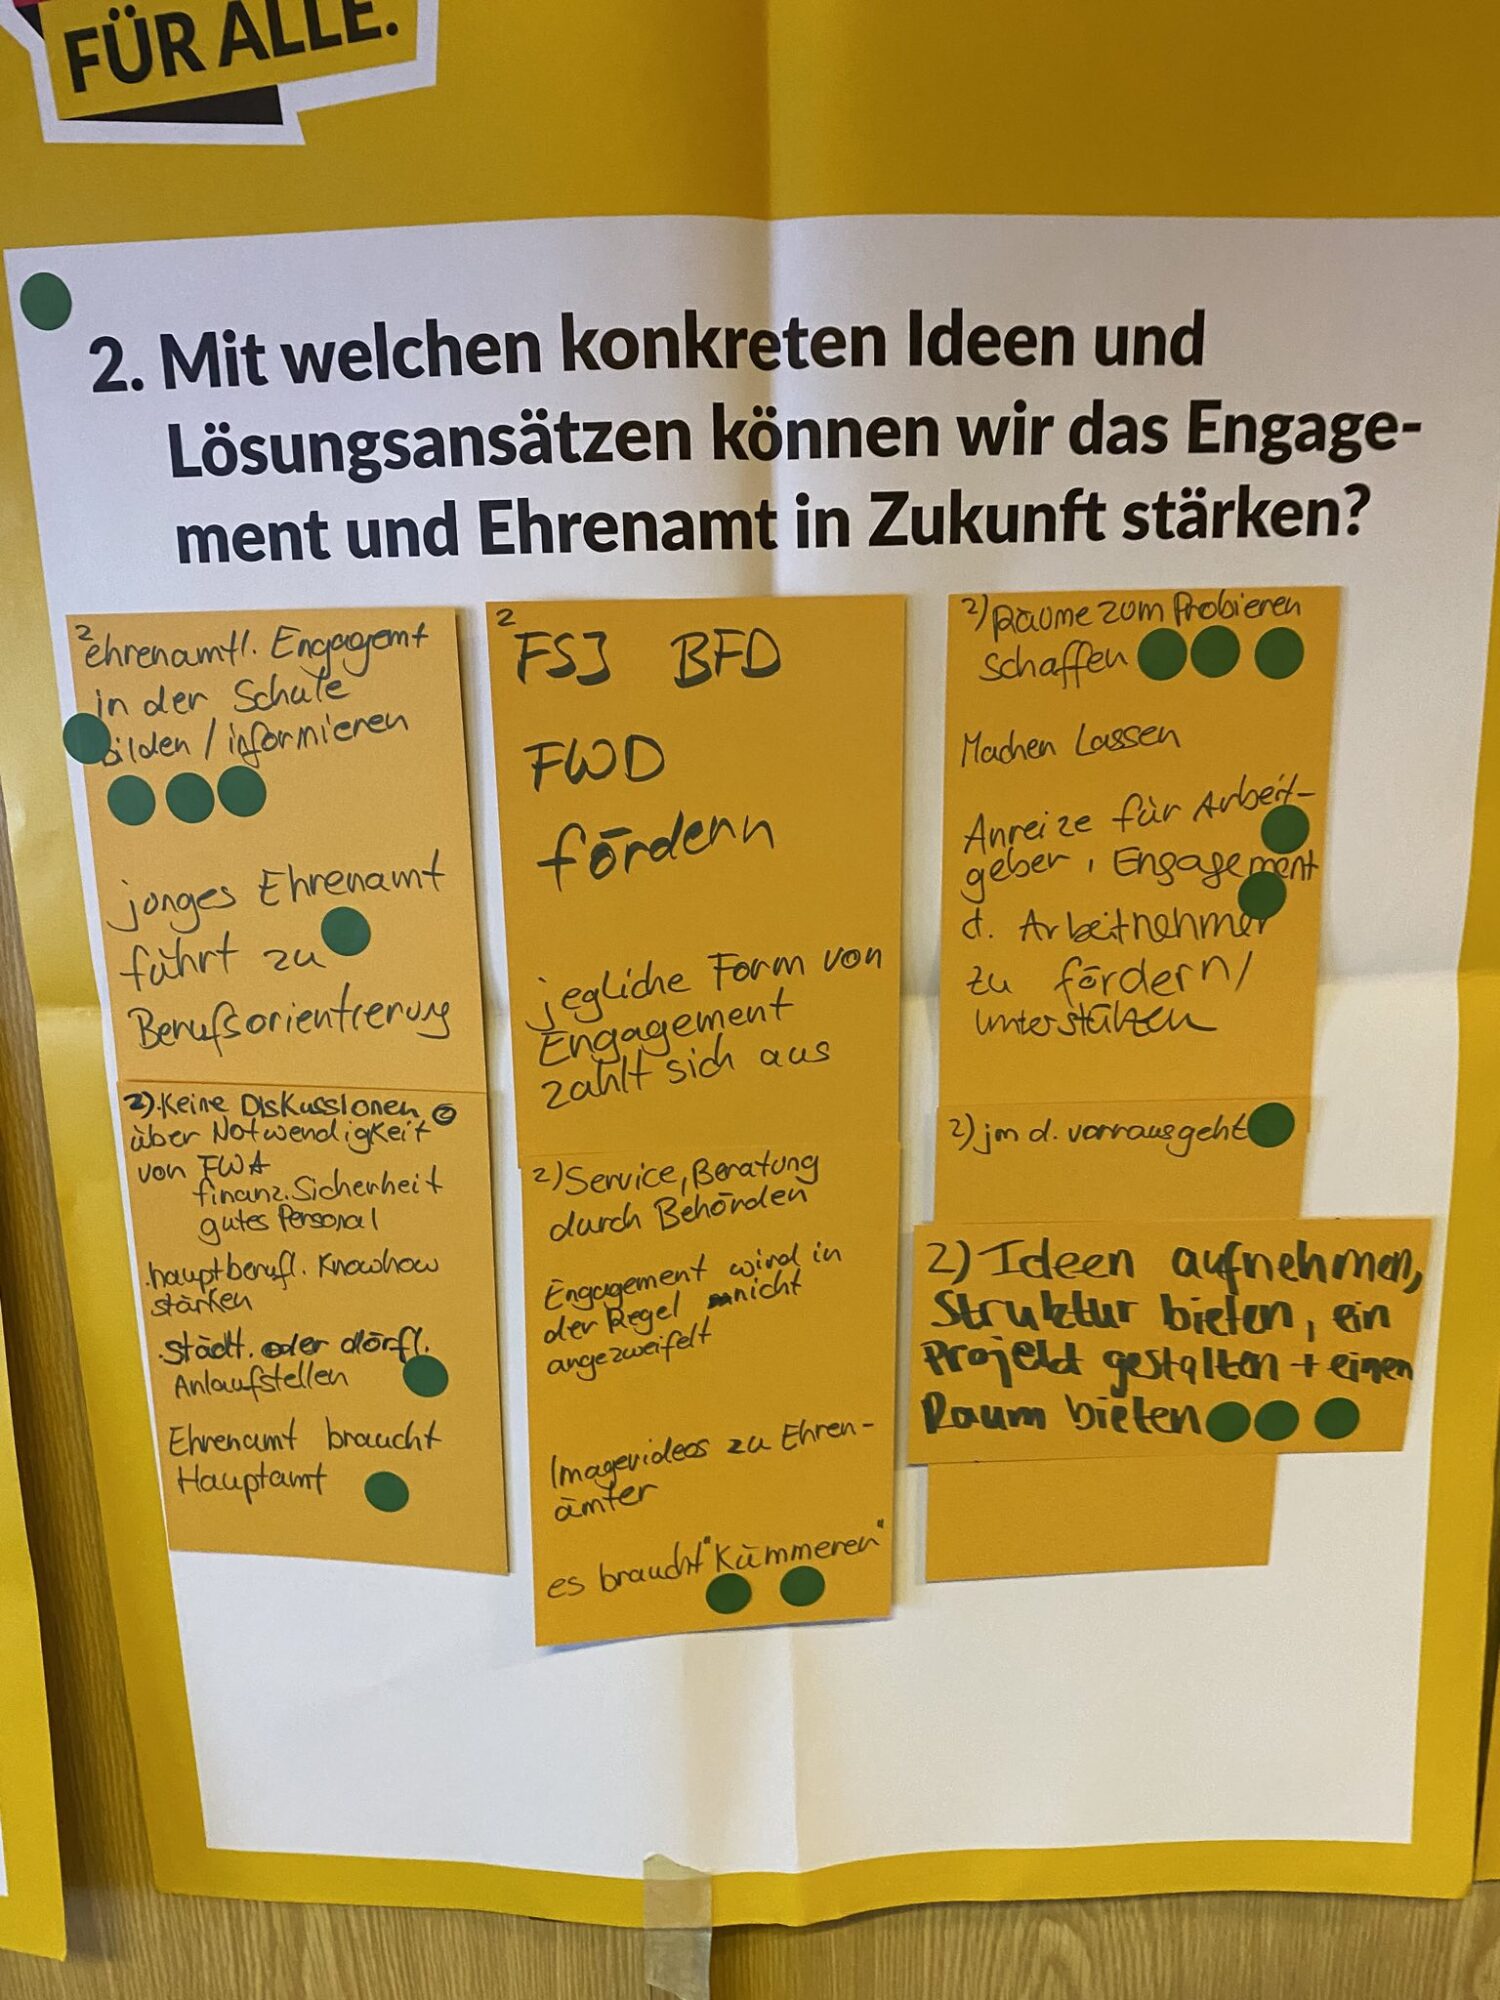 FÜR ALLE.
2. Mit welchen konkreten Ideen und
Lösungsansätzen können wir das Engage-
ment und Ehrenamt in Zukunft stärken?
2
ehrenamtl. Engagemt
in der Schule
bilden / informieren
junges Ehrenamt
führt zu
Berufsorientierung
2). Keine Diskussionen
über Notwendigkeit
von FWA
finanz. Sicherheit
gutes Personal
. hauptberufl. Knowhow
stärken
. städt. oder dörfl.
Anlaufstellen
Ehrenamt braucht
Hauptamt
2
FSJ BFD
FWD
fördern
jegliche Form von
Engagement
zahlt sich aus
2) Service, Beratung
durch Behörden
Engagement wird in
der Regel nicht
angezweifelt
Imagevideos zu Ehren-
ämter
es braucht "Kümmeren"
2) Räume zum Probieren
schaffen
Machen Lassen
Anreize für Arbeit-
geber, Engagement
d. Arbeitnehmer
zu fördern/
unterstützen
2) jm d. vorrausgeht
2) Ideen aufnehmen,
Struktur bieten, ein
Projekt gestalten + einen
Raum bieten